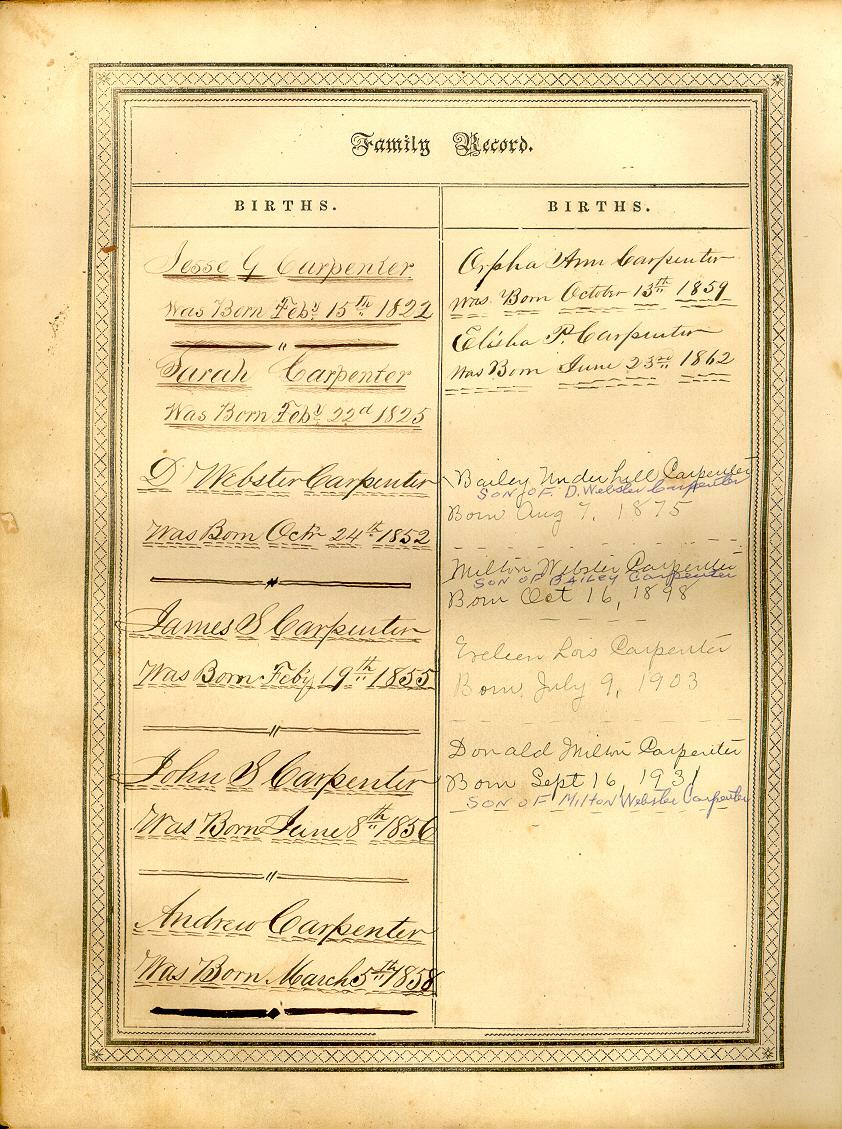 Family Record.
BIRTHS.
Jesse G Carpenter
Was Born Feby 15th 1822
Sarah Carpenter
Was Born Feby 22d 1825
D Webster Carpenter
Was Born Octr 24th 1852
James S Carpenter
Was Born Feby 19th 1855
John S Carpenter
Was Born June 8th 1856
Andrew Carpenter
Was Born March 5th 1858
BIRTHS.
Orpha Ann Carpenter
Was Born October 13th 1859
Elisha P. Carpenter
Was Born June 23rd 1862
Bailey Underhill Carpenter
SON OF D. Webster Carpenter
Born Aug 7, 1875
Milton Webster Carpenter
SON OF BAILEY Carpenter
Born Oct 16, 1898
Eveleen Lois Carpenter
Born July 9, 1903
Donald Milton Carpenter
Born Sept 16, 1931
SON OF Milton Webster Carpenter